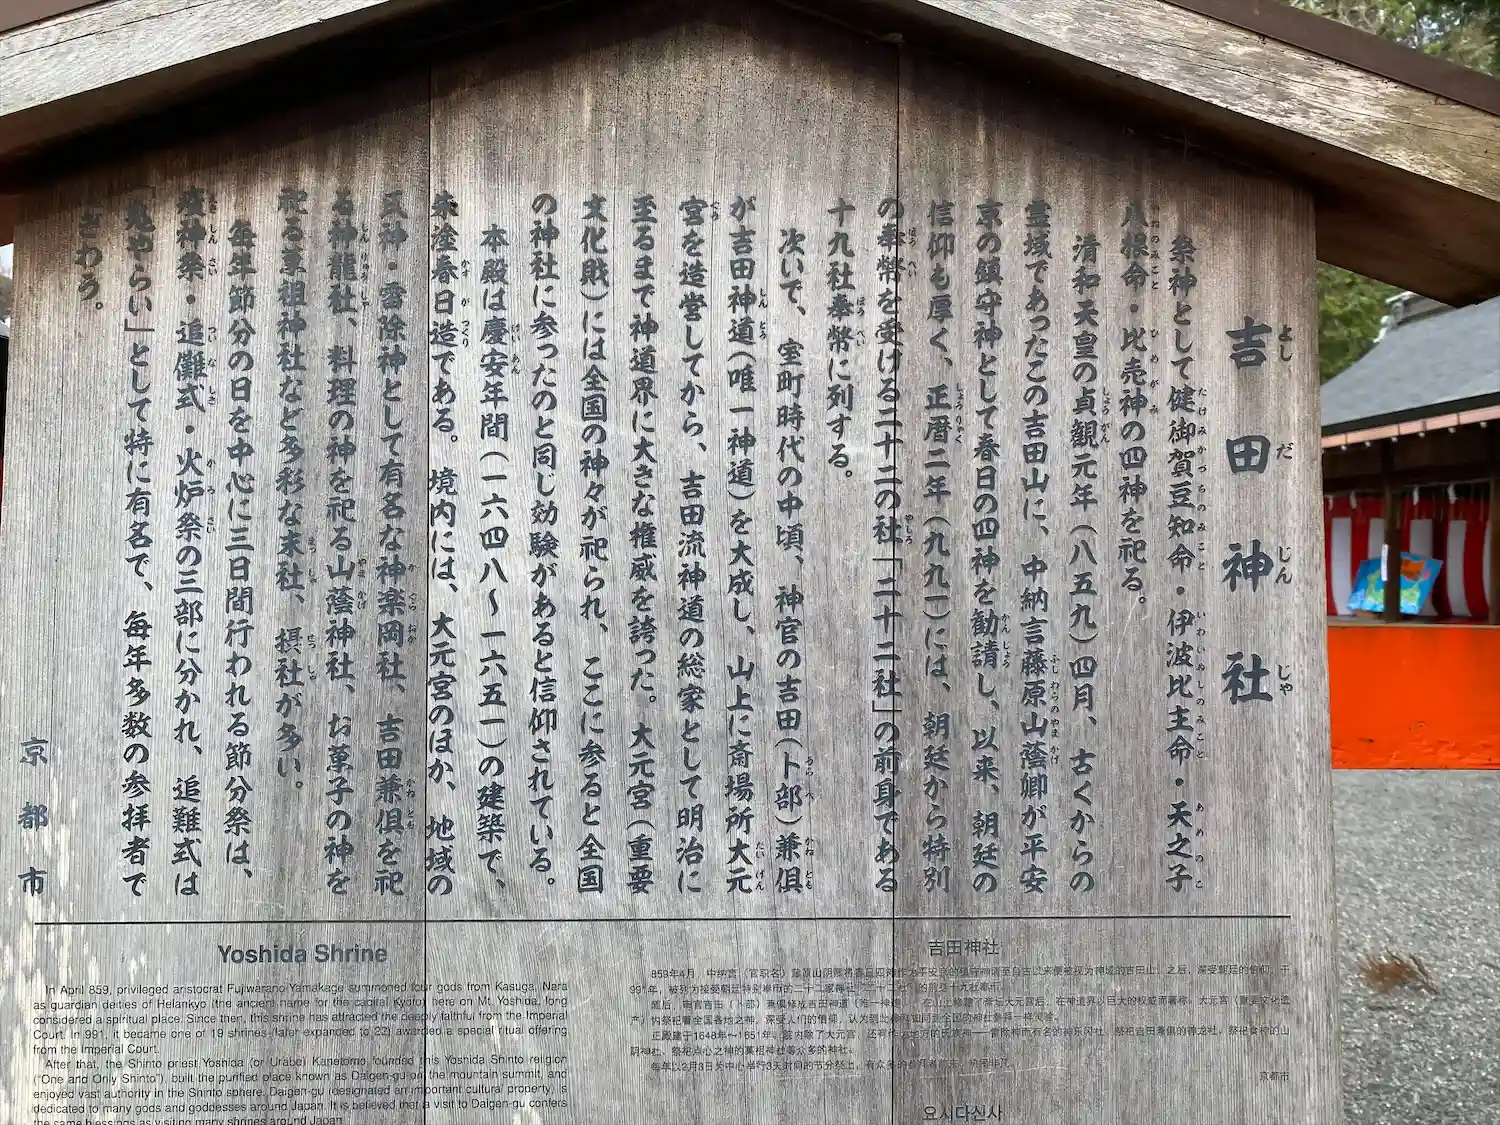 吉田神社
祭神として健御賀豆知命・伊波比主命・天之子
八根命・比売神の四神を祀る。
清和天皇の貞観元年(八五九)四月、古くからの
霊域であったこの吉田山に、中納言藤原山蔭卿が平安
京の鎮守神として春日の四神を勧請し、以来、朝廷の
信仰も厚く、正暦二年(九九一)には、朝廷から特別
の奉幣を受ける二十二の社「二十二社」の前身である
十九社奉幣に列する。
次いで、室町時代の中頃、神官の吉田(卜部)兼倶
が吉田神道(唯一神道)を大成し、山上に斎場所大元
宮を造営してから、吉田流神道の総家として明治に
至るまで神道界に大きな権威を誇った。大元宮(重要
文化財)には全国の神々が祀られ、ここに参ると全国
の神社に参ったのと同じ効験があると信仰されている。
本殿は慶安年間(一六四八〜一六五一)の建築で、
朱塗春日造である。境内には、大元宮のほか、地域の
氏神・雷除神として有名な神楽岡社、吉田兼倶を祀
る神龍社、料理の神を祀る山蔭神社、お菓子の神を
祀る菓祖神社など多彩な末社、摂社が多い。
毎年節分の日を中心に三日間行われる節分祭は、
疫神祭・追儺式・火炉祭の三部に分かれ、追難式は
「鬼やらい」として特に有名で、毎年多数の参拝者で
にぎわう。
京都市
Yoshida Shrine
In April 859, privileged aristocrat Fujiwarano Yamakage summoned four gods from Kasuga, Nara
as guardian deities of Heiankyo (the ancient name for the capital Kyoto) here on Mt. Yoshida, long
considered a spiritual place. Since then, this shrine has attracted the deeply faithful from the Imperial
Court. In 991, it became one of 19 shrines (later expanded to 22) awarded a special ritual offering
from the Imperial Court.
After that, the Shinto priest Yoshida (or Urabe) Kanetomo founded this Yoshida Shinto religion
("One and Only Shinto"), built the purified place known as Daigen-gu on the mountain summit, and
enjoyed vast authority in the Shinto sphere. Daigen-gu (designated an important cultural property) is
dedicated to many gods and goddesses around Japan. It is believed that a visit to Daigen-gu confers
the same blessings as visiting many shrines around Japan.
吉田神社
859年4月,中纳言(官职名)
京都市
요시다신사